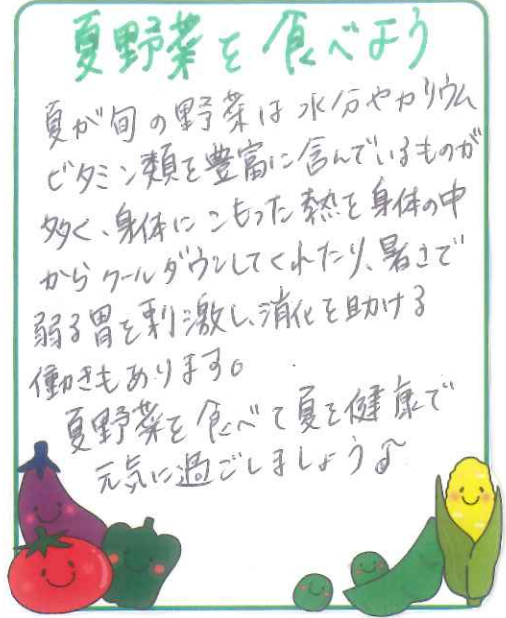 夏野菜を食べよう
夏が旬の野菜は水分やカリウム
ビタミン類を豊富に含んでいるものが
多く、身体にこもった熱を身体の中
からクールダウンしてくれたり、暑さで
弱る胃を刺激し、消化を助ける
働きもあります。
夏野菜を食べて夏を健康で
元気に過ごしましょう♪